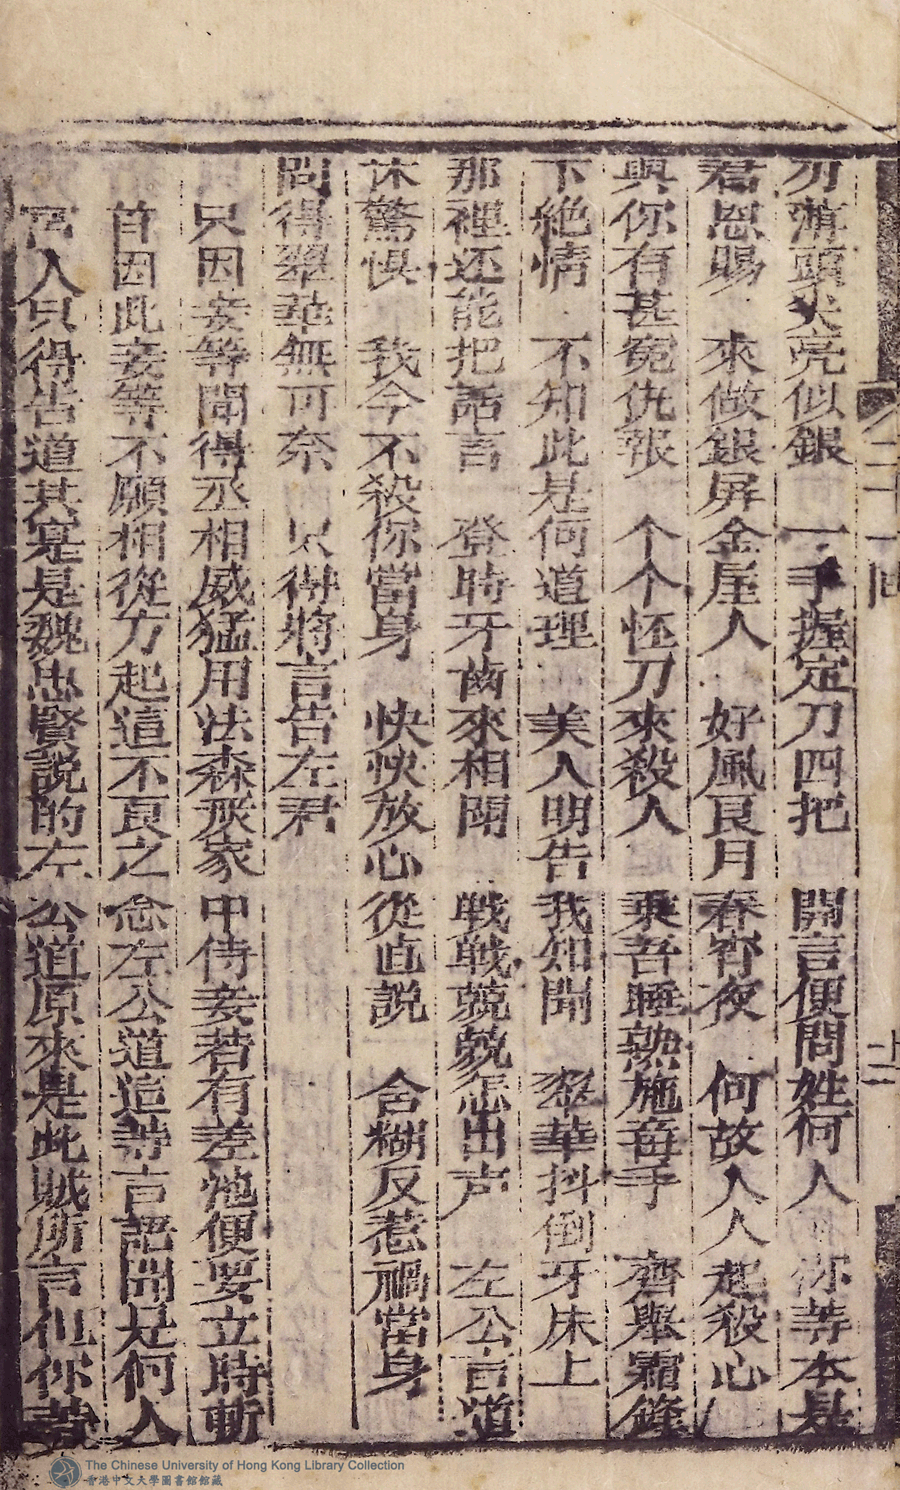 刃薄頭尖亮似銀　一手握定刀四把　開言便問姓何人　你等本是
君恩賜　來做銀屏金屋人　好風良月春宵夜　何故人人起殺心
與你有甚寃仇報　个个怀刀來殺人　乘吾睡熟施毒手　齊舉霜鋒
下絶情　不知此是何道理　美人明告我知聞　翠華抖倒牙床上
那裡还能把話言　登時牙齒來相閗　戦戦兢兢怎出声　左公言道
休驚惧　我今不殺你當身　快快放心從直説　含糊反惹禍當身
問得翠華無可奈　只得將言告左君
只因妾等聞得丞相威猛用法森嚴家中侍妾若有差池便要立時斬
首因此妾等不願相從方起這不良之念左公道這等言語出是何人
宮人只得告道其寔是魏忠賢説的左公道原來是此賊所言但你等
二十一回
十二
The Chinese University of Hong Kong Library Collection
香港中文大學圖書館館藏